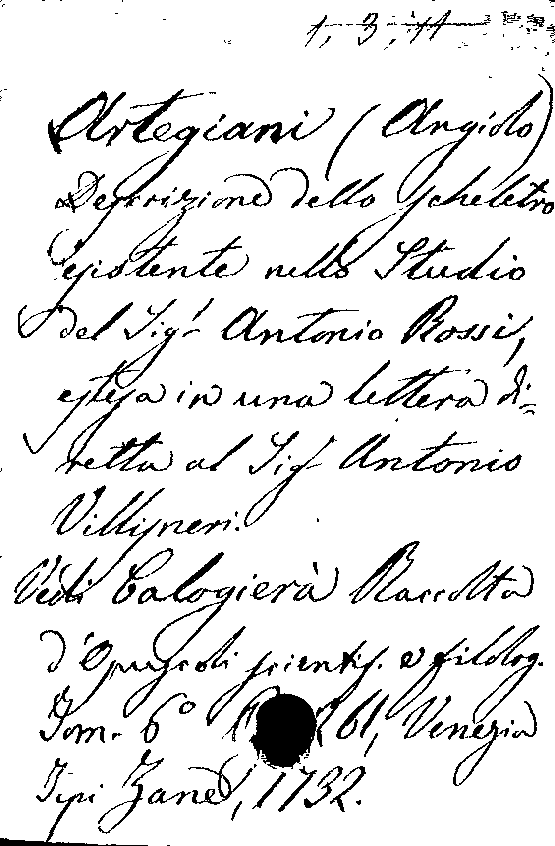 1, 3, 11
Artegiani (Angiolo)
Descrizione dello scheletro
esistente nello Studio
del Sigr Antonio Rossi,
estesa in una lettera di=
retta al Sigr Antonio
Villisneri.
Vedi Calogierà Raccolta
d'Opuscoli scientif. e filolog.
Tom. 6° 261, Venezia
Tipi Zane, 1732.